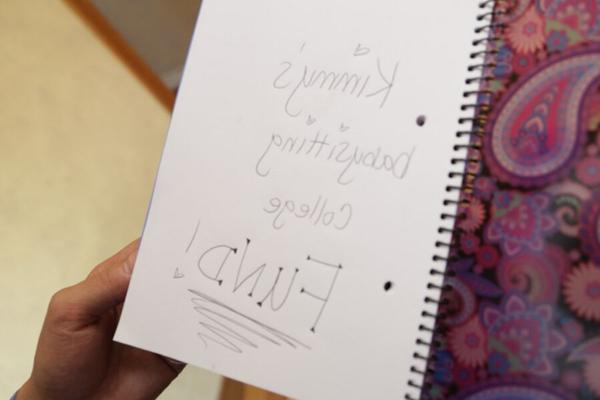 Kimmy's
babysitting
College
FUND!